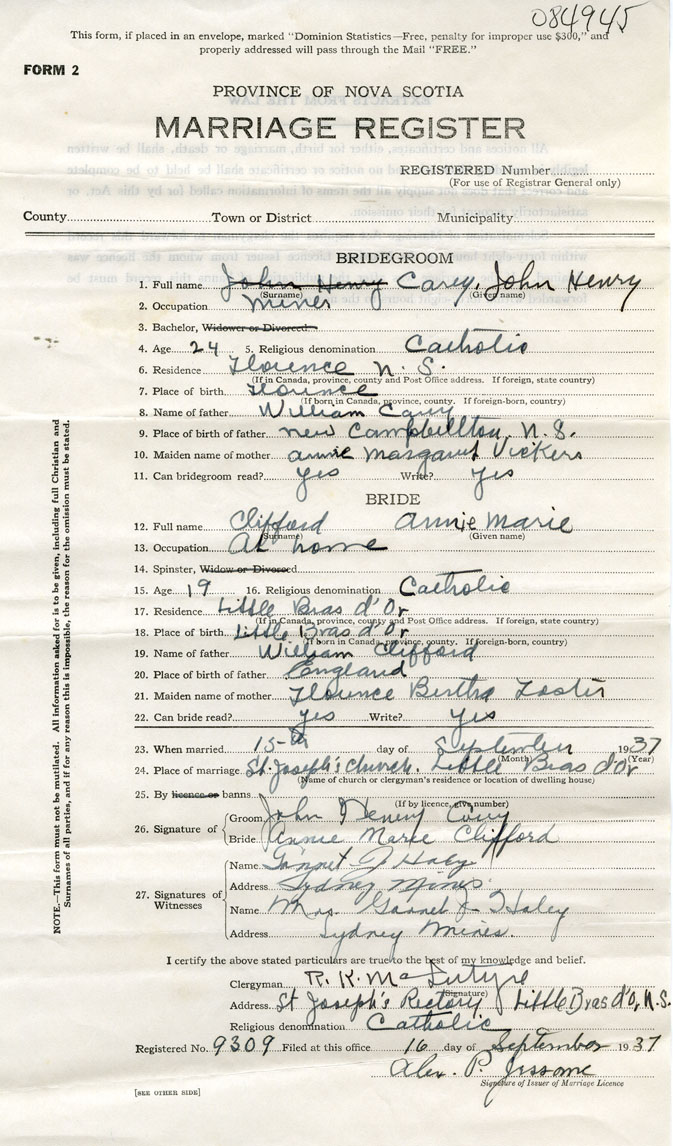 084945
This form, if placed in an envelope, marked "Dominion Statistics—Free, penalty for improper use $300," and
properly addressed will pass through the Mail "FREE."
FORM 2
PROVINCE OF NOVA SCOTIA
MARRIAGE REGISTER
REGISTERED Number
(For use of Registrar General only)
County Town or District Municipality
BRIDEGROOM
1. Full name John Henry Carey, John Henry
(Surname) (Given name)
2. Occupation Miner
3. Bachelor, Widower or Divorced
4. Age 24 5. Religious denomination Catholic
6. Residence Florence N. S.
(If in Canada, province, county and Post Office address. If foreign, state country)
7. Place of birth Florence
(If born in Canada, province, county. If foreign-born, country)
8. Name of father William Carey
9. Place of birth of father New Campbellton, N.S.
10. Maiden name of mother Annie Margaret Vickers
11. Can bridegroom read? yes Write? yes
BRIDE
12. Full name Clifford Annie Marie
(Surname) (Given name)
13. Occupation At home
14. Spinster, Widow or Divorced
15. Age 19 16. Religious denomination Catholic
17. Residence Little Bras d'Or
(If in Canada, province, county and Post Office address. If foreign, state country)
18. Place of birth Little Bras d'Or
(If born in Canada, province, county. If foreign-born, country)
19. Name of father William Clifford
20. Place of birth of father England
21. Maiden name of mother Florence Bertha Foster
22. Can bride read? yes Write? yes
23. When married 15th day of September 1937
(Month) (Year)
24. Place of marriage St. Joseph's Church, Little Bras d'Or
(Name of church or clergyman's residence or location of dwelling house)
25. By licence or banns
(If by licence, give number)
26. Signature of
Groom John Henry Carey
Bride Annie Marie Clifford
27. Signatures of Witnesses
Name Garnet J Haley
Address Sydney Mines
Name Mrs. Garnet J Haley
Address Sydney Mines.
I certify the above stated particulars are true to the best of my knowledge and belief.
Clergyman R. K. MacIntyre
(Signature)
Address St Joseph's Rectory Little Bras d'Or, N.S.
Religious denomination Catholic
Registered No. 9309 Filed at this office 16 day of September 1937
Alex. P. Jessome
Signature of Issuer of Marriage Licence
[SEE OTHER SIDE]
NOTE.—This form must not be mutilated. All information asked for is to be given, including full Christian and
Surnames of all parties, and if for any reason this is impossible, the reason for the omission must be stated.